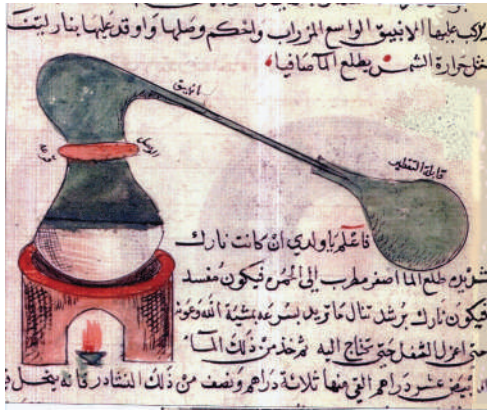 يركب عليها الانبيق الواسع المزراب وليحكم وصلها واوقد عليها بنار لينة
مثل حرارة الشمس يطلع الما صافيا
انبيق
قابلة التقطير
فاعلم يا ولدي ان كانت نارك
شديده طلع الما اصفر مطرب إلى الحمر فيكون مفسد
فيكون نارك برشد تنال ما تريد بسرعه بمشية الله وعونه
حتى اعزل الثفل حتى تحتاج اليه ثم خذ من ذلك الماء
دراهم القي منها ثلاثة دراهم ونصف من ذلك النشادر فانه ينحل